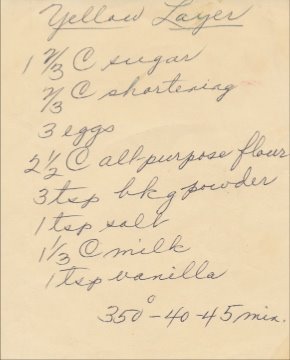 Yellow Layer
1 2/3 C sugar
2/3 C shortening
3 eggs
2 1/2 C all purpose flour
3 tsp bkg powder
1 tsp salt
1 1/3 C milk
1 tsp vanilla
350° - 40 - 45 min.